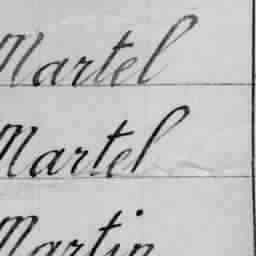 Martel
Martel
Martin